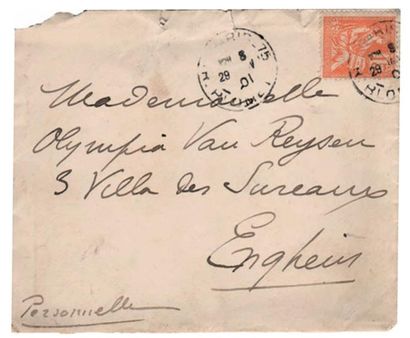 PARIS-75
Mademoiselle
Olympia Van Reysen
3 Villa des Sureaux
Enghein
Personnelle